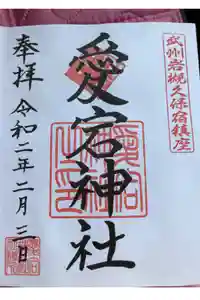 武州岩槻久保宿鎮座
愛宕神社
奉拝
令和二年二月三日